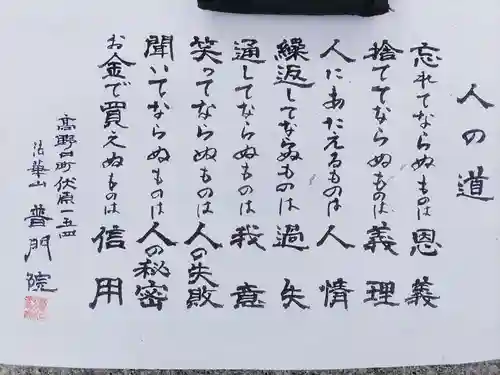 人の道
忘れてならぬものは恩義
捨ててならぬものは義理
人にあたえるものは人情
繰返してならぬものは過失
通してならぬものは我意
笑ってならぬものは人の失敗
聞いてならぬものは人の秘密
お金で買えぬものは信用
高野口町伏原一五四
法華山 普門院